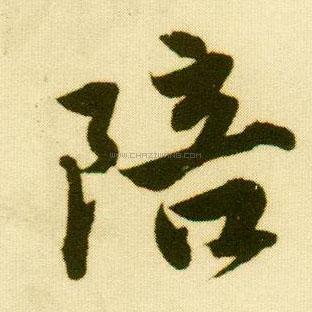 陪
WWW.CHAZIWANG.COM